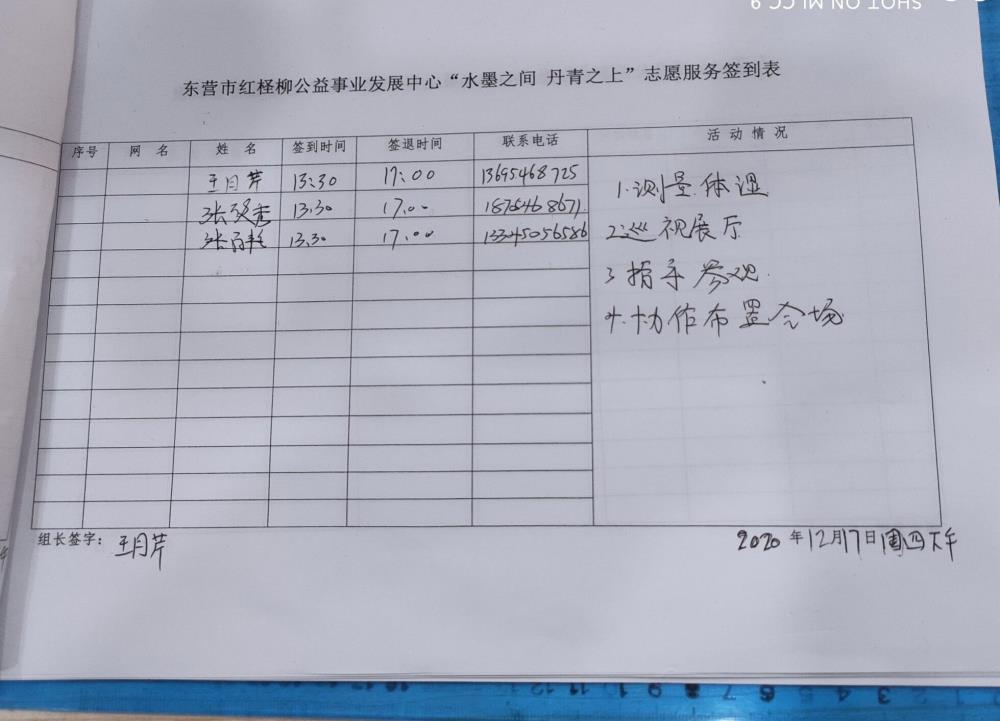 SHOT ON MI CC 9
东营市红柽柳公益事业发展中心“水墨之间 丹青之上”志愿服务签到表
序号 网 名 姓 名 签到时间 签退时间 联系电话 活 动 情 况
王月芹 13:30 17:00 13695468725
张 秀 13.30 17.00
张百耗 13.30 17.00 13345056586
1.测量体温
2.巡视展厅
3 指导参观.
4.协作布置会场
组长签字: 王月芹
2020 年12月17日周四下午
10 12 11 10 9 8 7 6 5 4 3 2 1